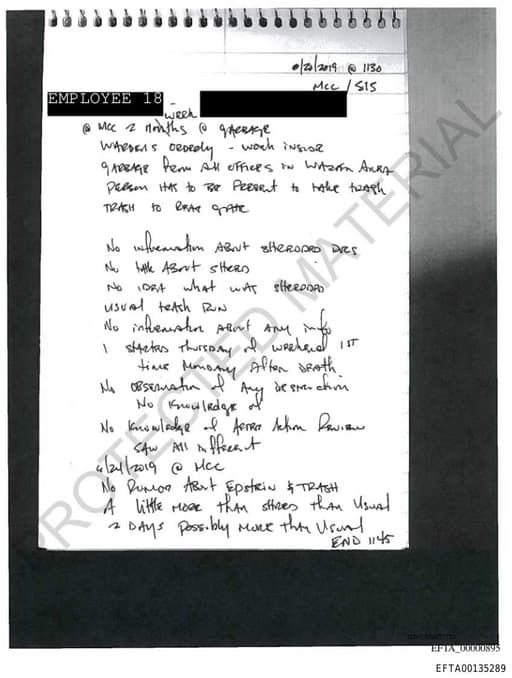 /20/2019 @ 1130
MCC / SIS
EMPLOYEE 18 -
week
@ MCC 2 months @ garbage
Wardens orderly - work inside
garbage from all offices in Warden Area
Person has to be present to take trash
Trash to rear gate
No information about shredded docs
No talk about shred
No idea what was shredded
usual trash run
No information about any info
1 started Thursday of weekend 1st
time Monday after death.
No observation of any destruction
No knowledge of
No knowledge of After Action Review
saw all
/2019 @ MCC
No rumor about Epstein & trash
A little more than shreds than usual
2 days possibly more than usual
END 1145
PROTECTED MATERIAL
EFTA_00000895
EFTA00135289